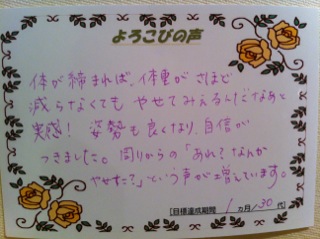 よろこびの声
体が締まれば、体重がさほど
減らなくても やせてみえるんだなあと
実感! 姿勢も良くなり、自信が
つきました。周りからの「あれ?なんか
やせた?」という声が増えています。
[目標達成期間 1ヵ月/30代]